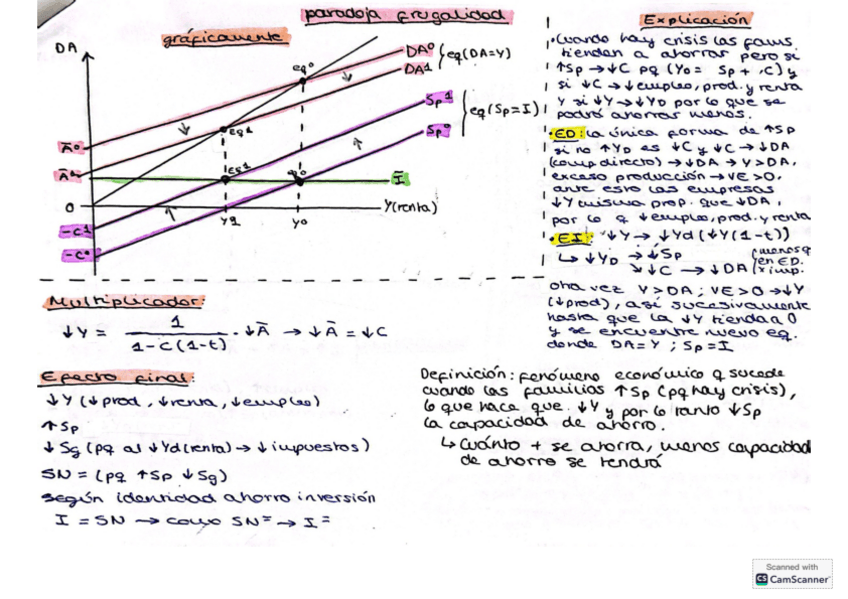 paradoja frugalidad
gráficamente
DA
eq⁰
DA⁰
DA¹
eq(DA=Y)
Sp¹
Sp⁰
eq(Sp=I)
eq1
Ā⁰
Ā¹
eq1
eq⁰
Ī
0
Y1
Y0
Y(renta)
-C¹
-C⁰
Explicación
·Cuando hay crisis las fams.
tienden a ahorrar pero si
↑Sp → ↓C pq (Y0 = Sp + C) y
si ↓C → ↓empleo, prod. y renta
y si ↓Y → ↓YD por lo que se
podrá ahorrar menos.
·ED: la única forma de ↑Sp
si no ↑YD es ↓C y ↓C → ↓DA
(comp directo) → ↓DA → Y > DA,
exceso producción → VE > 0,
ante esto las empresas
↓Y misma prop. que ↓DA,
por lo q ↓empleo, prod. y renta
·EI: ↓Y → ↓Yd (↓Y(1-t))
↳ ↓YD → ↓Sp (menos q
en ED.
↘ ↓C → ↓DA x imp.
otra vez Y > DA ; VE > 0 → ↓Y
(↓prod), así sucesivamente
hasta que la ↓Y tienda a 0
y se encuentre nuevo eq.
donde DA = Y ; Sp = I
Multiplicador:
↓Y = 1 / 1-C(1-t) · ↓Ā → ↓Ā = ↓C
Efecto final:
↓Y (↓prod, ↓renta, ↓empleo)
↑Sp
↓Sg (pq al ↓Yd(renta) → ↓impuestos)
SN = (pq ↑Sp ↓Sg)
según identidad ahorro inversión
I = SN → como SN⁼ → I⁼
Definición: fenómeno económico q sucede
cuando las familias ↑Sp (pq hay crisis),
lo que hace que ↓Y y por lo tanto ↓Sp
la capacidad de ahorro.
↳ Cuánto + se ahorra, menos capacidad
de ahorro se tendrá
Scanned with
CS CamScanner